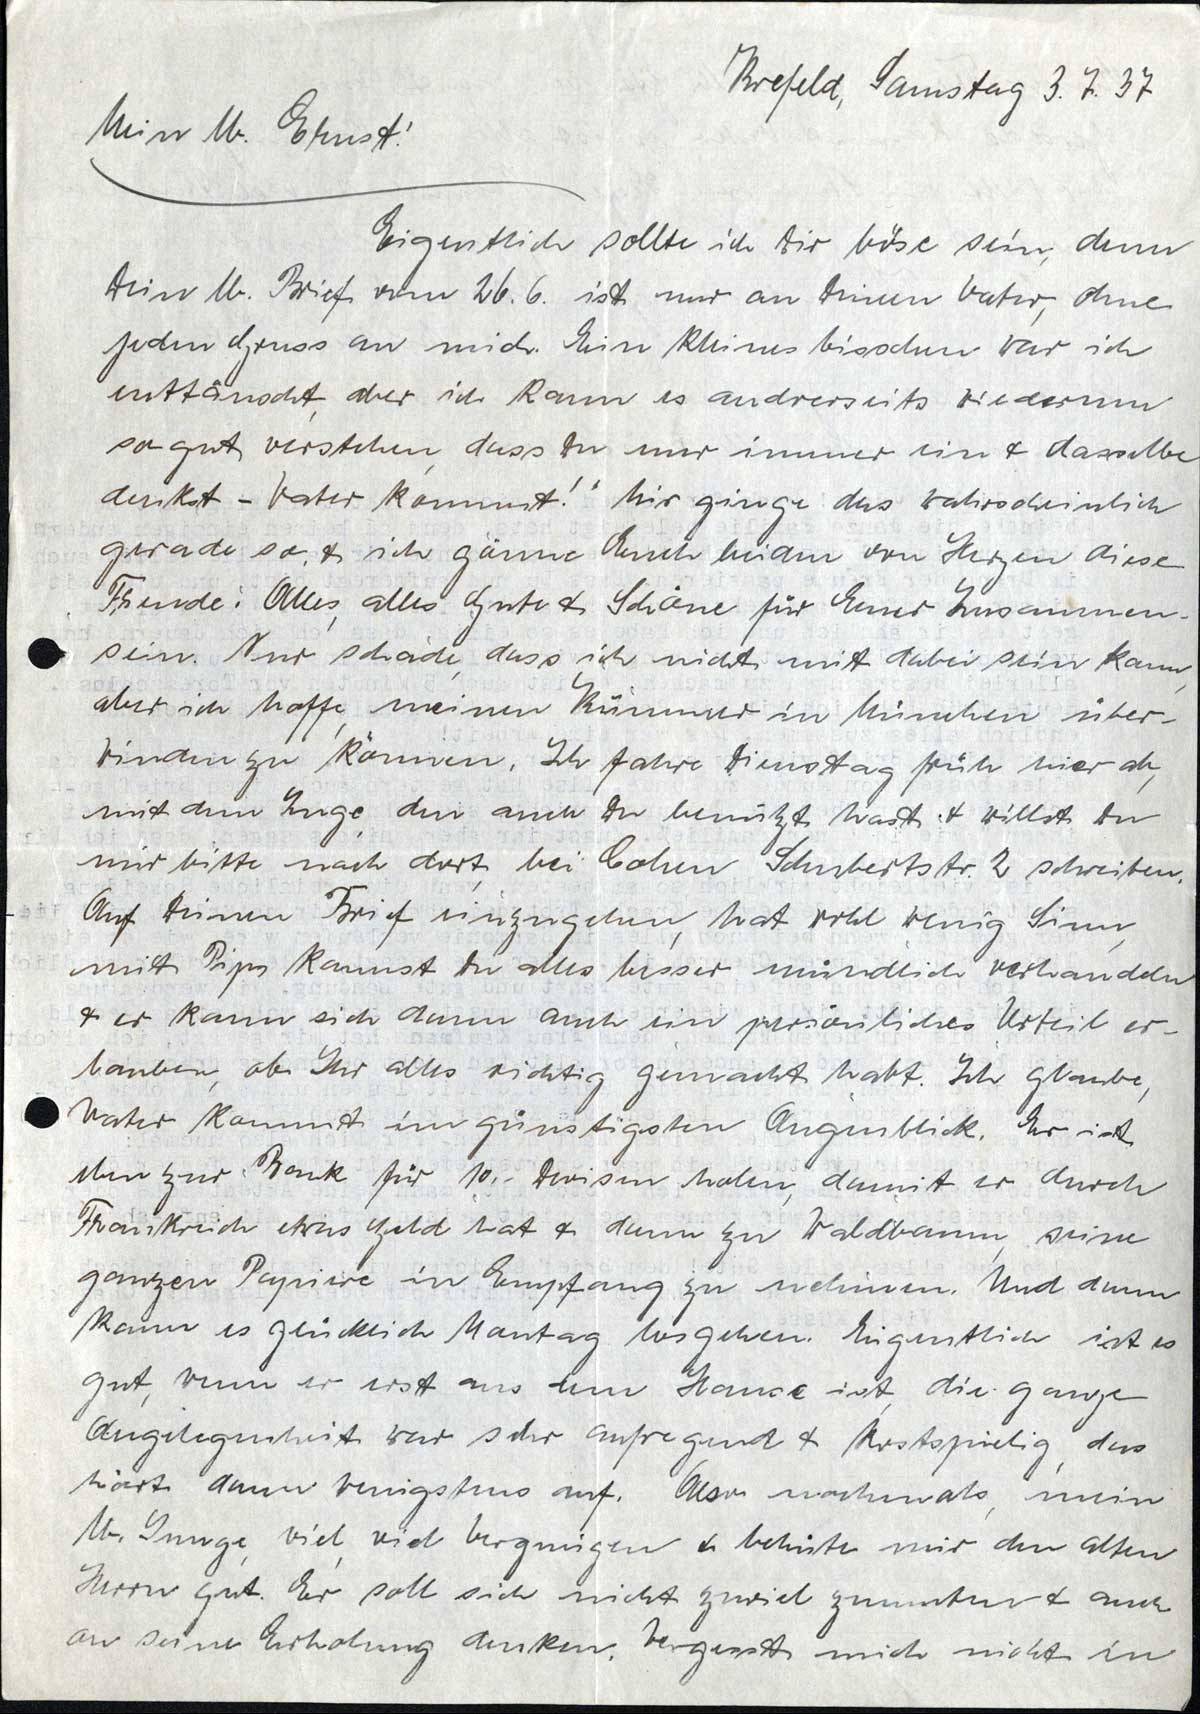 Krefeld, Samstag 3.7.37
Mein lb. Ernst!
Eigentlich sollte ich Dir böse sein, denn
Dein lb. Brief vom 26.6. ist nur an Deinen Vater, ohne
jeden Gruss an mich. Ein kleines bisschen war ich
enttäuscht, aber ich kann es andrerseits wiederum
so gut verstehen, dass Du nur immer ein & dasselbe
denkst – Vater kommt!" Mir ginge das wahrscheinlich
gerade so, & ich gönne Euch beiden von Herzen diese
Freude! Alles, alles Gute & Schöne für Euer Zusammen-
sein. Nur schade, dass ich nicht mit dabei sein kann,
aber ich hoffe, meinen Kummer in München über-
winden zu können. Ich fahre Dienstag früh hier ab,
mit dem Zuge, den auch Du benützt hast & willst Du
mir bitte nach dort, bei Cohen Schubertstr. 2 schreiben.
Auf Deinen Brief einzugehen, hat wohl wenig Sinn,
mit Pips kannst Du alles besser mündlich verhandeln
& er kann sich dann auch ein persönliches Urteil er-
lauben, ob Ihr alles richtig gemacht habt. Ich glaube,
Vater kommt im günstigsten Augenblick. Er ist
eben zur Bank für 10.- Devisen holen, damit er durch
Frankreich etwas Geld hat & dann zu Waldbaum, seine
ganzen Papiere in Empfang zu nehmen. Und dann
kann es glücklich Montag losgehen. Eigentlich ist es
gut, wenn er erst aus dem Hause ist, die ganze
Angelegenheit war sehr aufregend & kostspielig, das
hört dann wenigstens auf. Also nochmals, mein
lb. Junge, viel, viel Vergnügen & behüte mir den alten
Herrn gut. Er soll sich nicht zuviel zumuten & auch
an seine Erholung denken. Vergesst mich nicht in